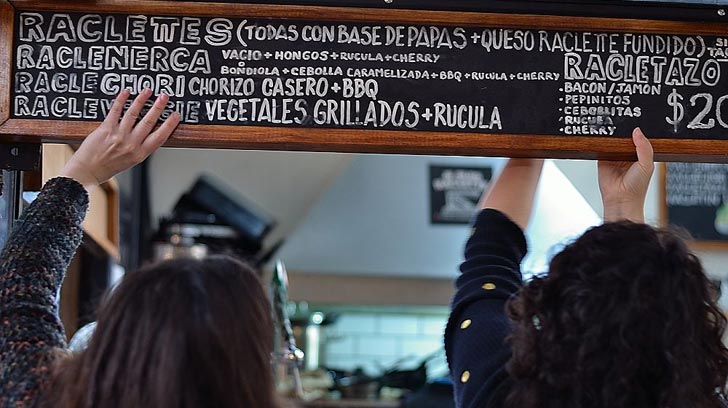 RACLETTES (TODAS CON BASE DE PAPAS + QUESO RACLETTE FUNDIDO)
RACLENERCA VACIO + HONGOS + RUCULA + CHERRY
BONDIOLA + CEBOLLA CARAMELIZADA + BBQ + RUCULA + CHERRY
RACLE CHORI CHORIZO CASERO + BBQ
VEGETALES GRILLADOS + RUCULA
RACLETAZO
BACON/JAMÓN
PEPINITOS
CEBOLLITAS
CHERRY